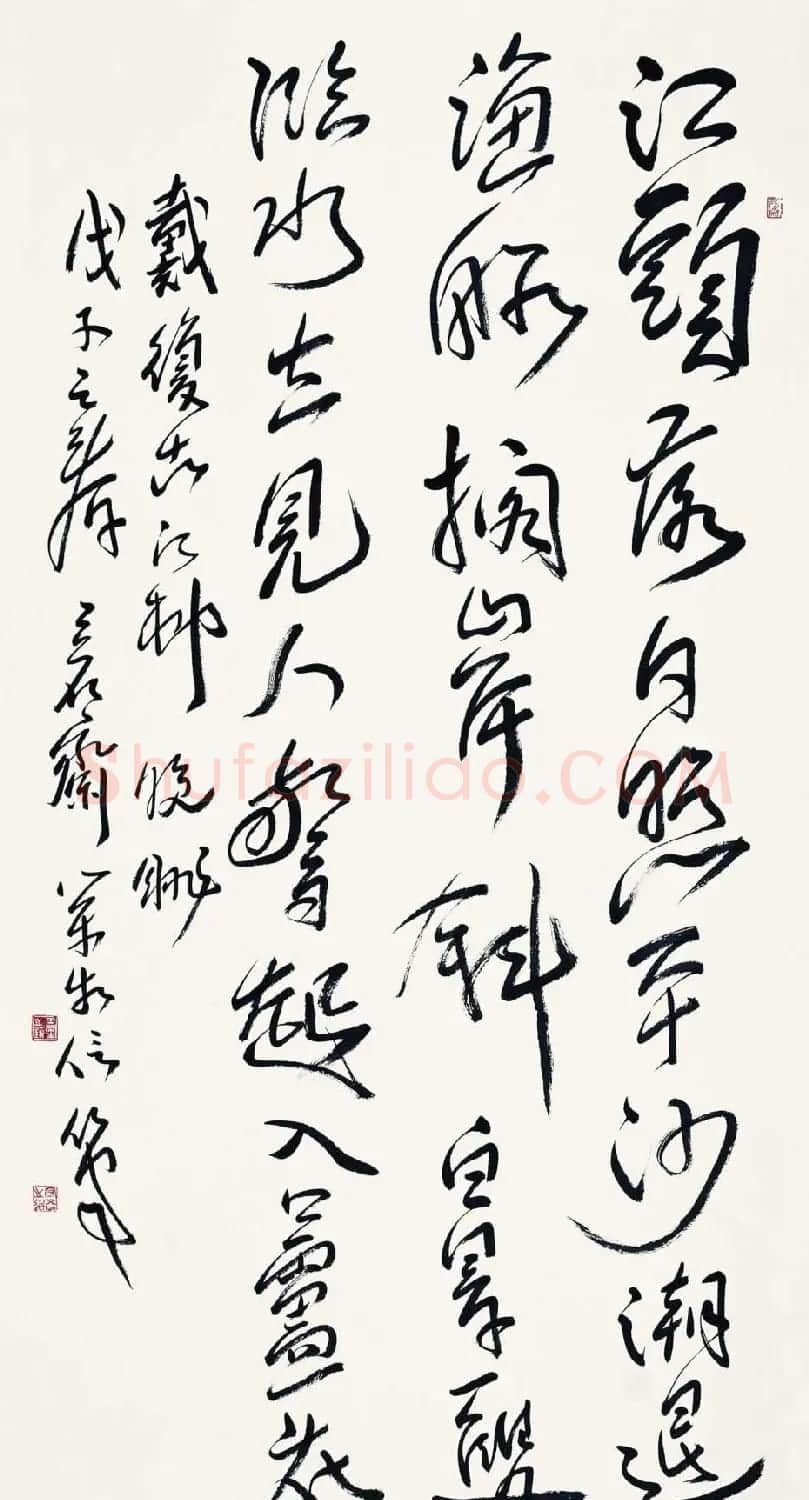 江頭落日照平沙潮退
漁船擱岸斜白鳥一雙
臨水立見人驚起入蘆花
戴復古江村晚眺
戊子之春 齋 信筆
Shufaziliao.COM